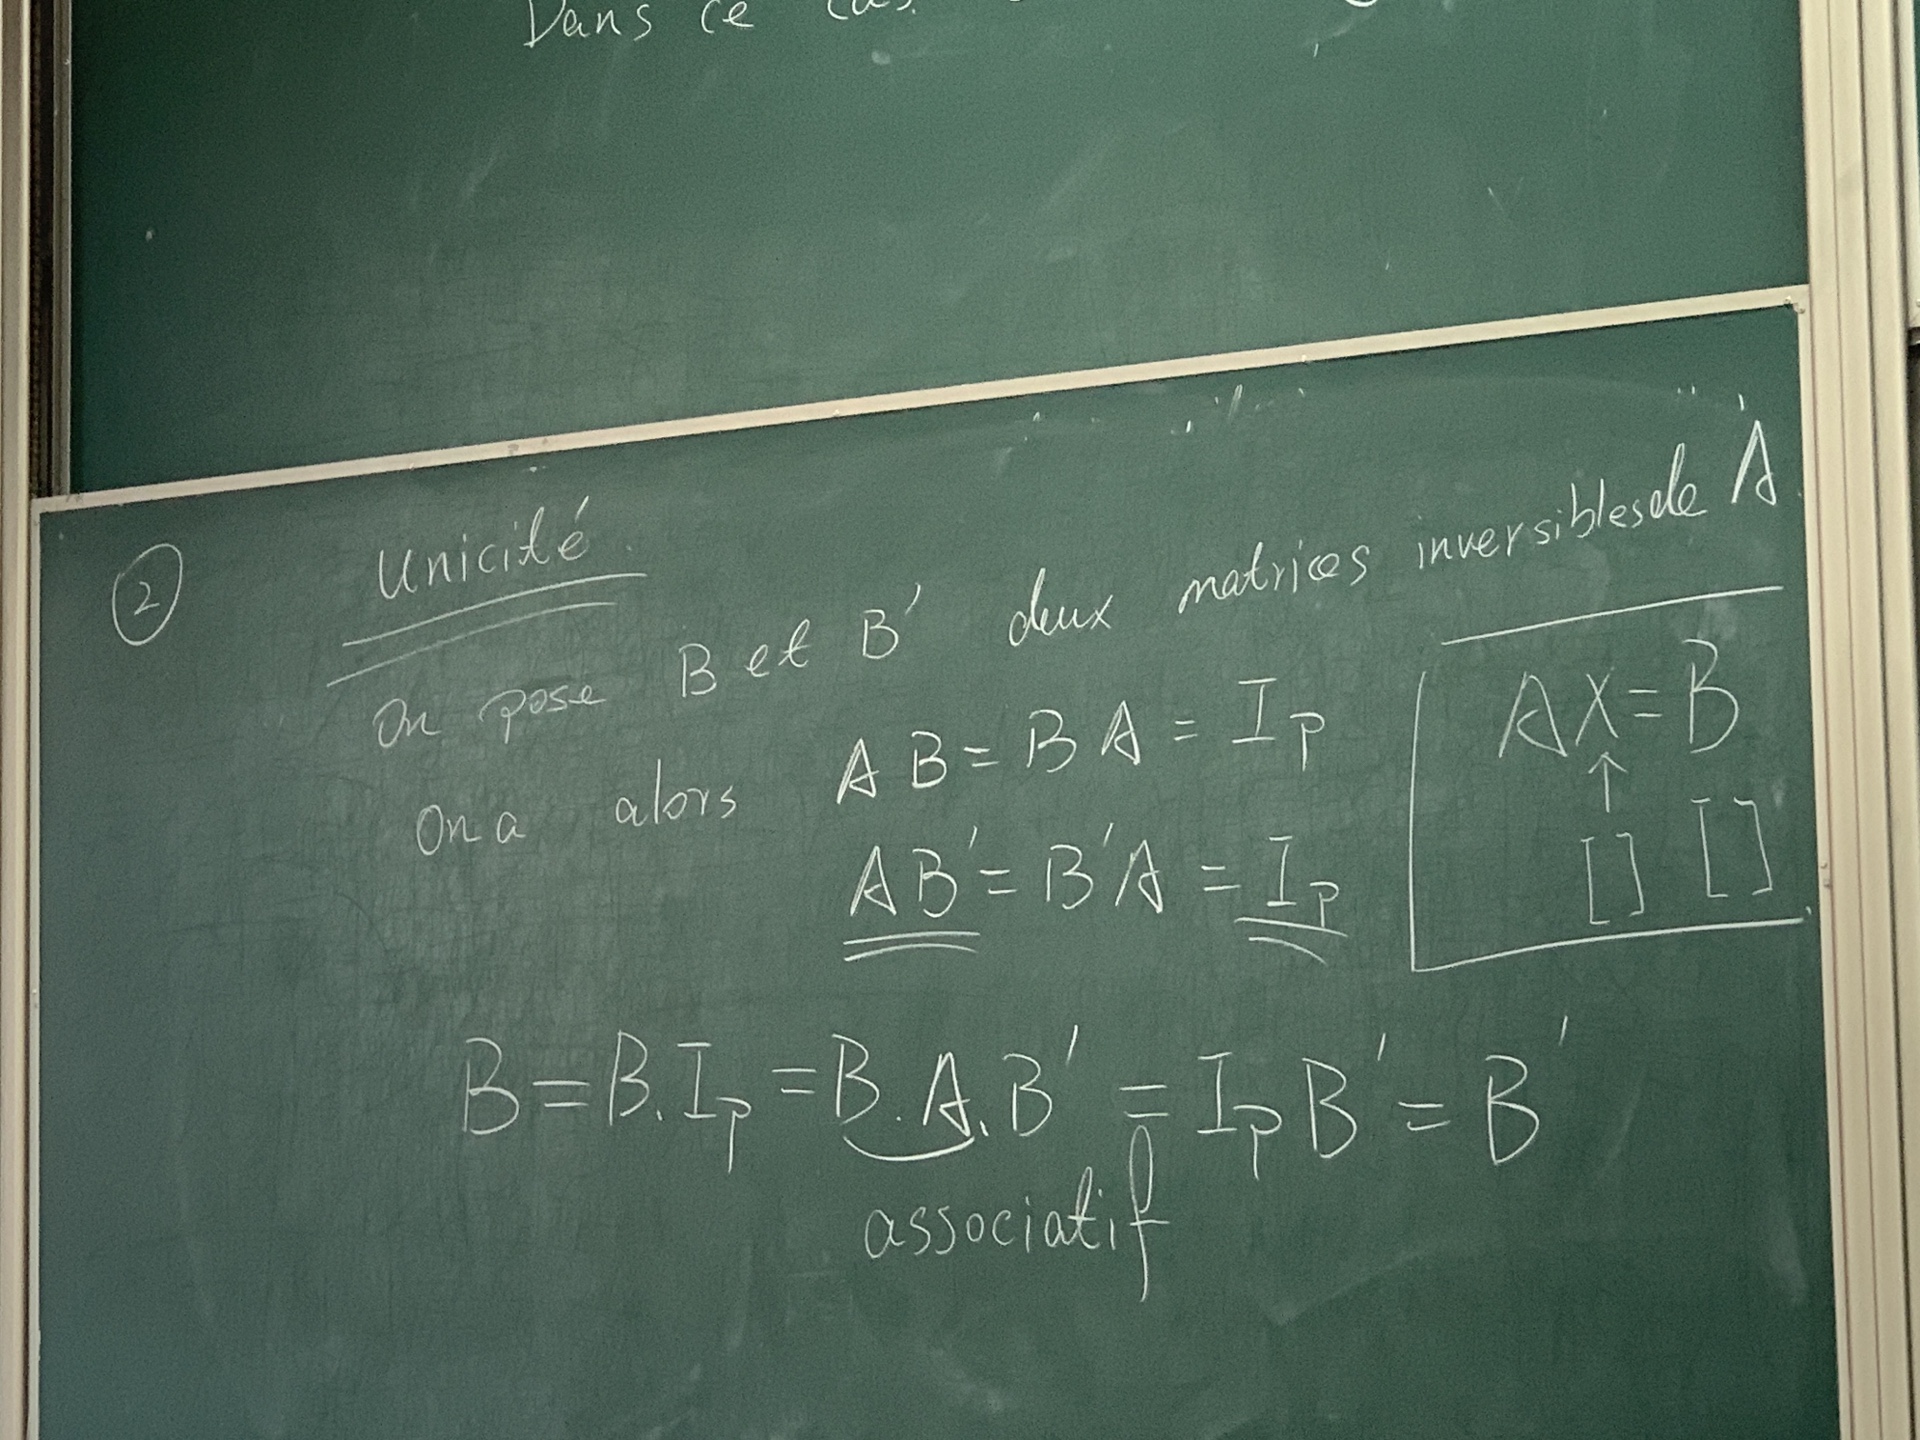 Dans ce cas
② Unicité
On pose B et B' deux matrices inversibles de A
On a alors AB = BA = Ip
AB' = B'A = Ip
AX = B
↑
[ ] [ ]
B = B.Ip = B.A.B' = Ip B' = B'
associatif